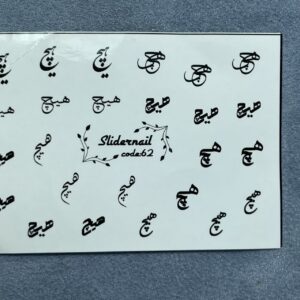 هیچ هیچ هیچ هیچ هیچ
هیچ هیچ هیچ هیچ هیچ
Slidernail
code:62
هیچ هیچ هیچ هیچ
هیچ هیچ هیچ هیچ
هیچ هیچ هیچ هیچ